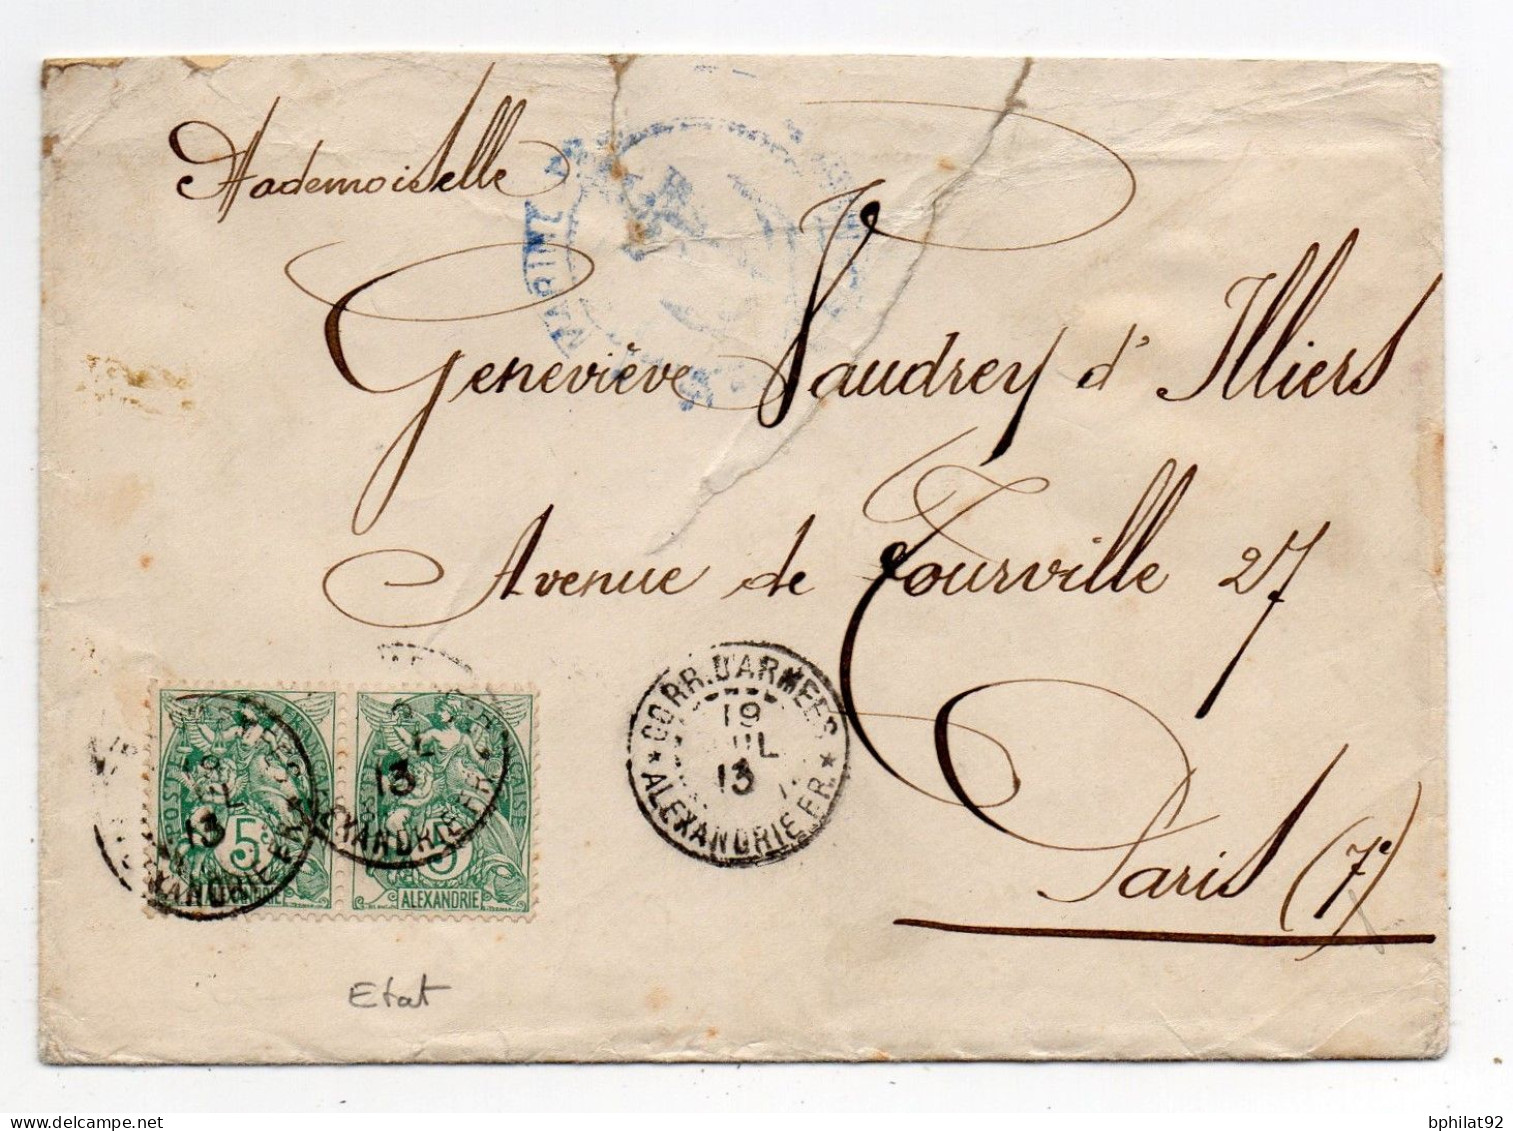 Mademoiselle
Geneviève Vaudrey d' Illiers
Avenue de Tourville 27
Paris (7e)
MARINE
CORR. D'ARMEES
19
JUIL
13
* ALEXANDRIE FR. *
5c
ALEXANDRIE
13
5
ALEXANDRIE
13
Etat
bphilat92